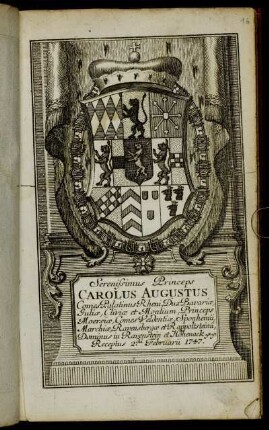 Serenissimus Princeps
CAROLUS AUGUSTUS
Comes Palatinus Rheni, Dux Bavariæ,
Juliæ, Cliviæ et Montium, Princeps
Moersiæ, Comes Veldentiæ, Sponhemii,
Marchiæ, Ravensbergæ et Rappoltsteinii,
Dominus in Ravenstein et Hohenack
Receptus Februarii 1747.